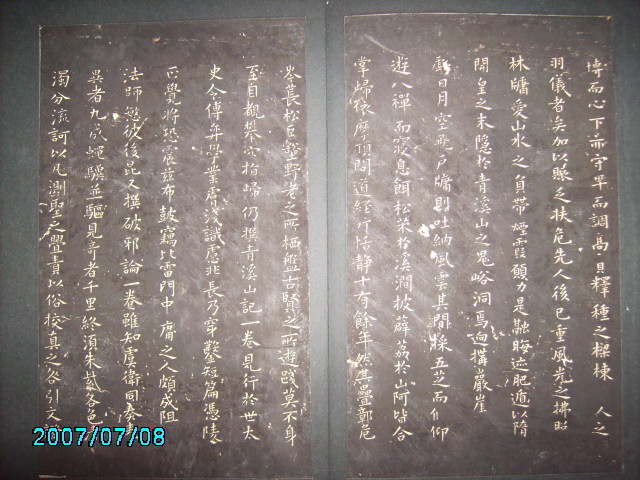 博而心下亦守卑而調高寔釋種之樑棟 人之
羽儀者矣加以賑乏扶危先人後己重風光之拂照
林牖愛山水之負帶煙霞願力是融晦迹肥遁以隋
開皇之末隱於青溪山之鬼谷洞焉迺構巖崖
戲日月空飛戶牖則吐納風雲其間採五芝而仰
遊八禪而寢息餌松柒於溪澗披薜荔於山阿皆合
掌歸依摩頂問道經行恬靜十有餘年然其疊鄣危
岑長松巨壑野老之所栖盤古賢之所遊踐莫不身
至目觀攀穴指歸仍撰青溪山記一卷見行於世太
史令傅弈學業膚淺識慮非長乃穿鑿短篇憑陵
正覺將恐震茲布鼓竊比雷門中庸之人頗成阻
法師愍彼後昆又撰破邪論一卷雖知虞衛同奏
異者九成蠅驥並驅見奇者千里終須朱紫各色
濁分流訶以凡測聖之舋責以俗校真之咎引文
2007/07/08